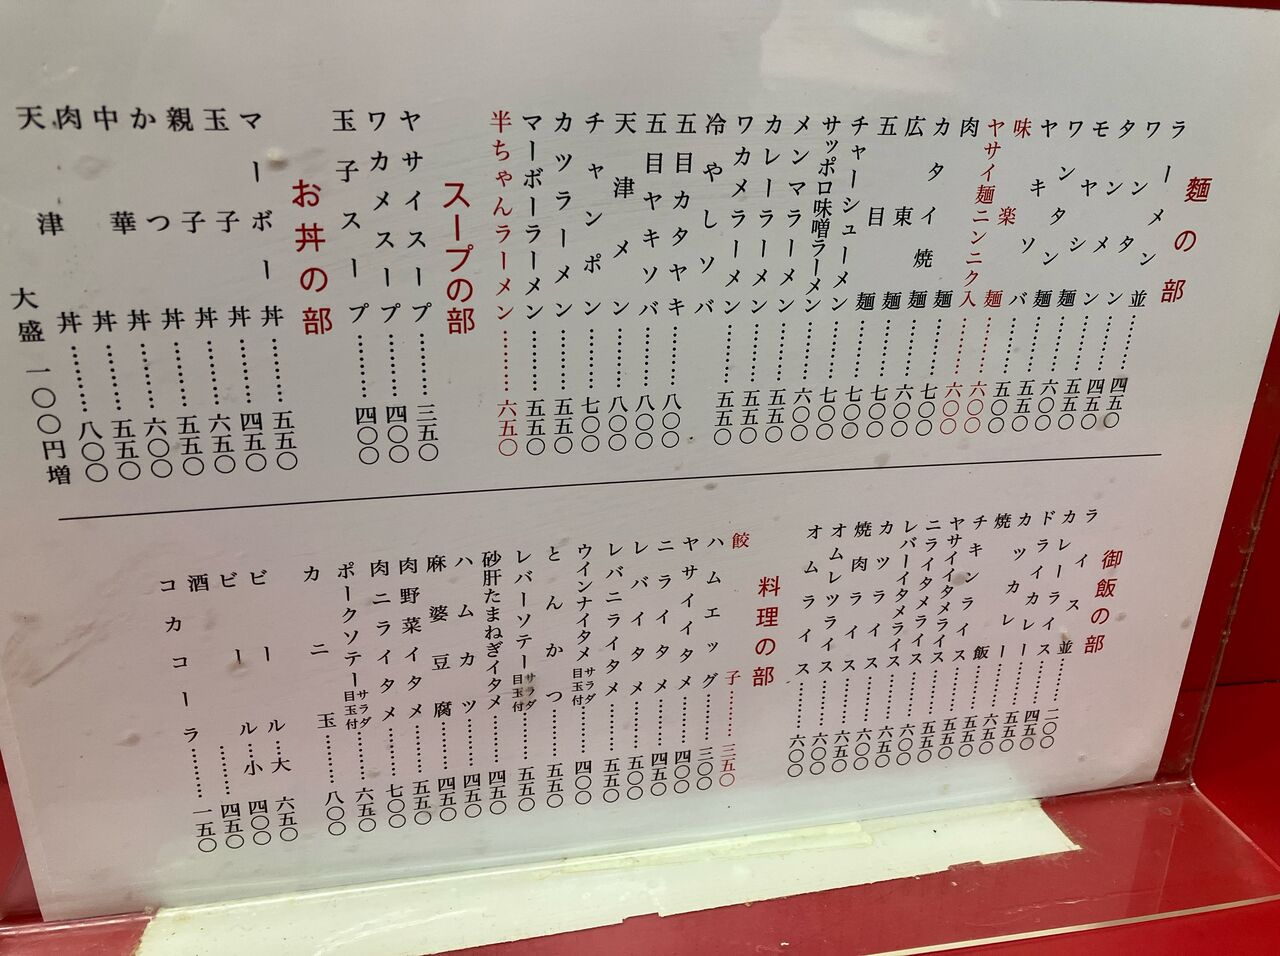 麺の部
ラーメン並………四五〇
ワンタン………四五〇
タンメン………五五〇
モヤシ麺………六〇〇
ワンタン麺………五五〇
ヤキソバ………五〇〇
味楽麺………六〇〇
ヤサイ麺ニンニク入………六〇〇
肉麺………七〇〇
カタイ焼麺………六〇〇
広東麺………七〇〇
五目麺………七〇〇
チャーシューメン………七〇〇
サッポロ味噌ラーメン………六〇〇
メンマラーメン………五五〇
カレーラーメン………五五〇
ワカメラーメン………五五〇
冷やしソバ
五目カタヤキ………八〇〇
五目ヤキソバ………八〇〇
天津メン………八〇〇
チャンポン………七〇〇
カツラーメン………五五〇
マーボーラーメン………五五〇
半ちゃんラーメン………六五〇
スープの部
ヤサイスープ………三五〇
ワカメスープ………四〇〇
玉子スープ………四〇〇
お丼の部
マーボー丼………五五〇
玉子丼………四五〇
親子丼………六五〇
かつ丼………五五〇
中華丼………六〇〇
肉丼………五五〇
天津丼………八〇〇
大盛一〇〇円増
御飯の部
ライス並………二〇〇
カレーライス………四五〇
ドライカレー………五五〇
カツカレー………六五〇
焼飯………五五〇
チキンライス………五五〇
ヤサイイタメライス………五五〇
ニライタメライス………六〇〇
レバーイタメライス………六五〇
カツライス………六〇〇
焼肉ライス………六五〇
オムレツライス………六〇〇
オムライス………六〇〇
料理の部
餃子………三五〇
ハムエッグ………三〇〇
ヤサイイタメ………四〇〇
ニライタメ………四五〇
レバイタメ………五〇〇
レバニライタメ………五五〇
ウインナイタメ サラダ目玉付………四〇〇
とんかつ………五五〇
レバーソテー サラダ目玉付………五五〇
砂肝たまねぎイタメ………四五〇
ハムカツ………四五〇
麻婆豆腐………四五〇
肉野菜イタメ………五五〇
肉ニライタメ………七〇〇
ポークソテー サラダ目玉付………六五〇
カニ玉………八〇〇
ビール大 六五〇
ビール小 四〇〇
酒………四五〇
コカコーラ………一五〇